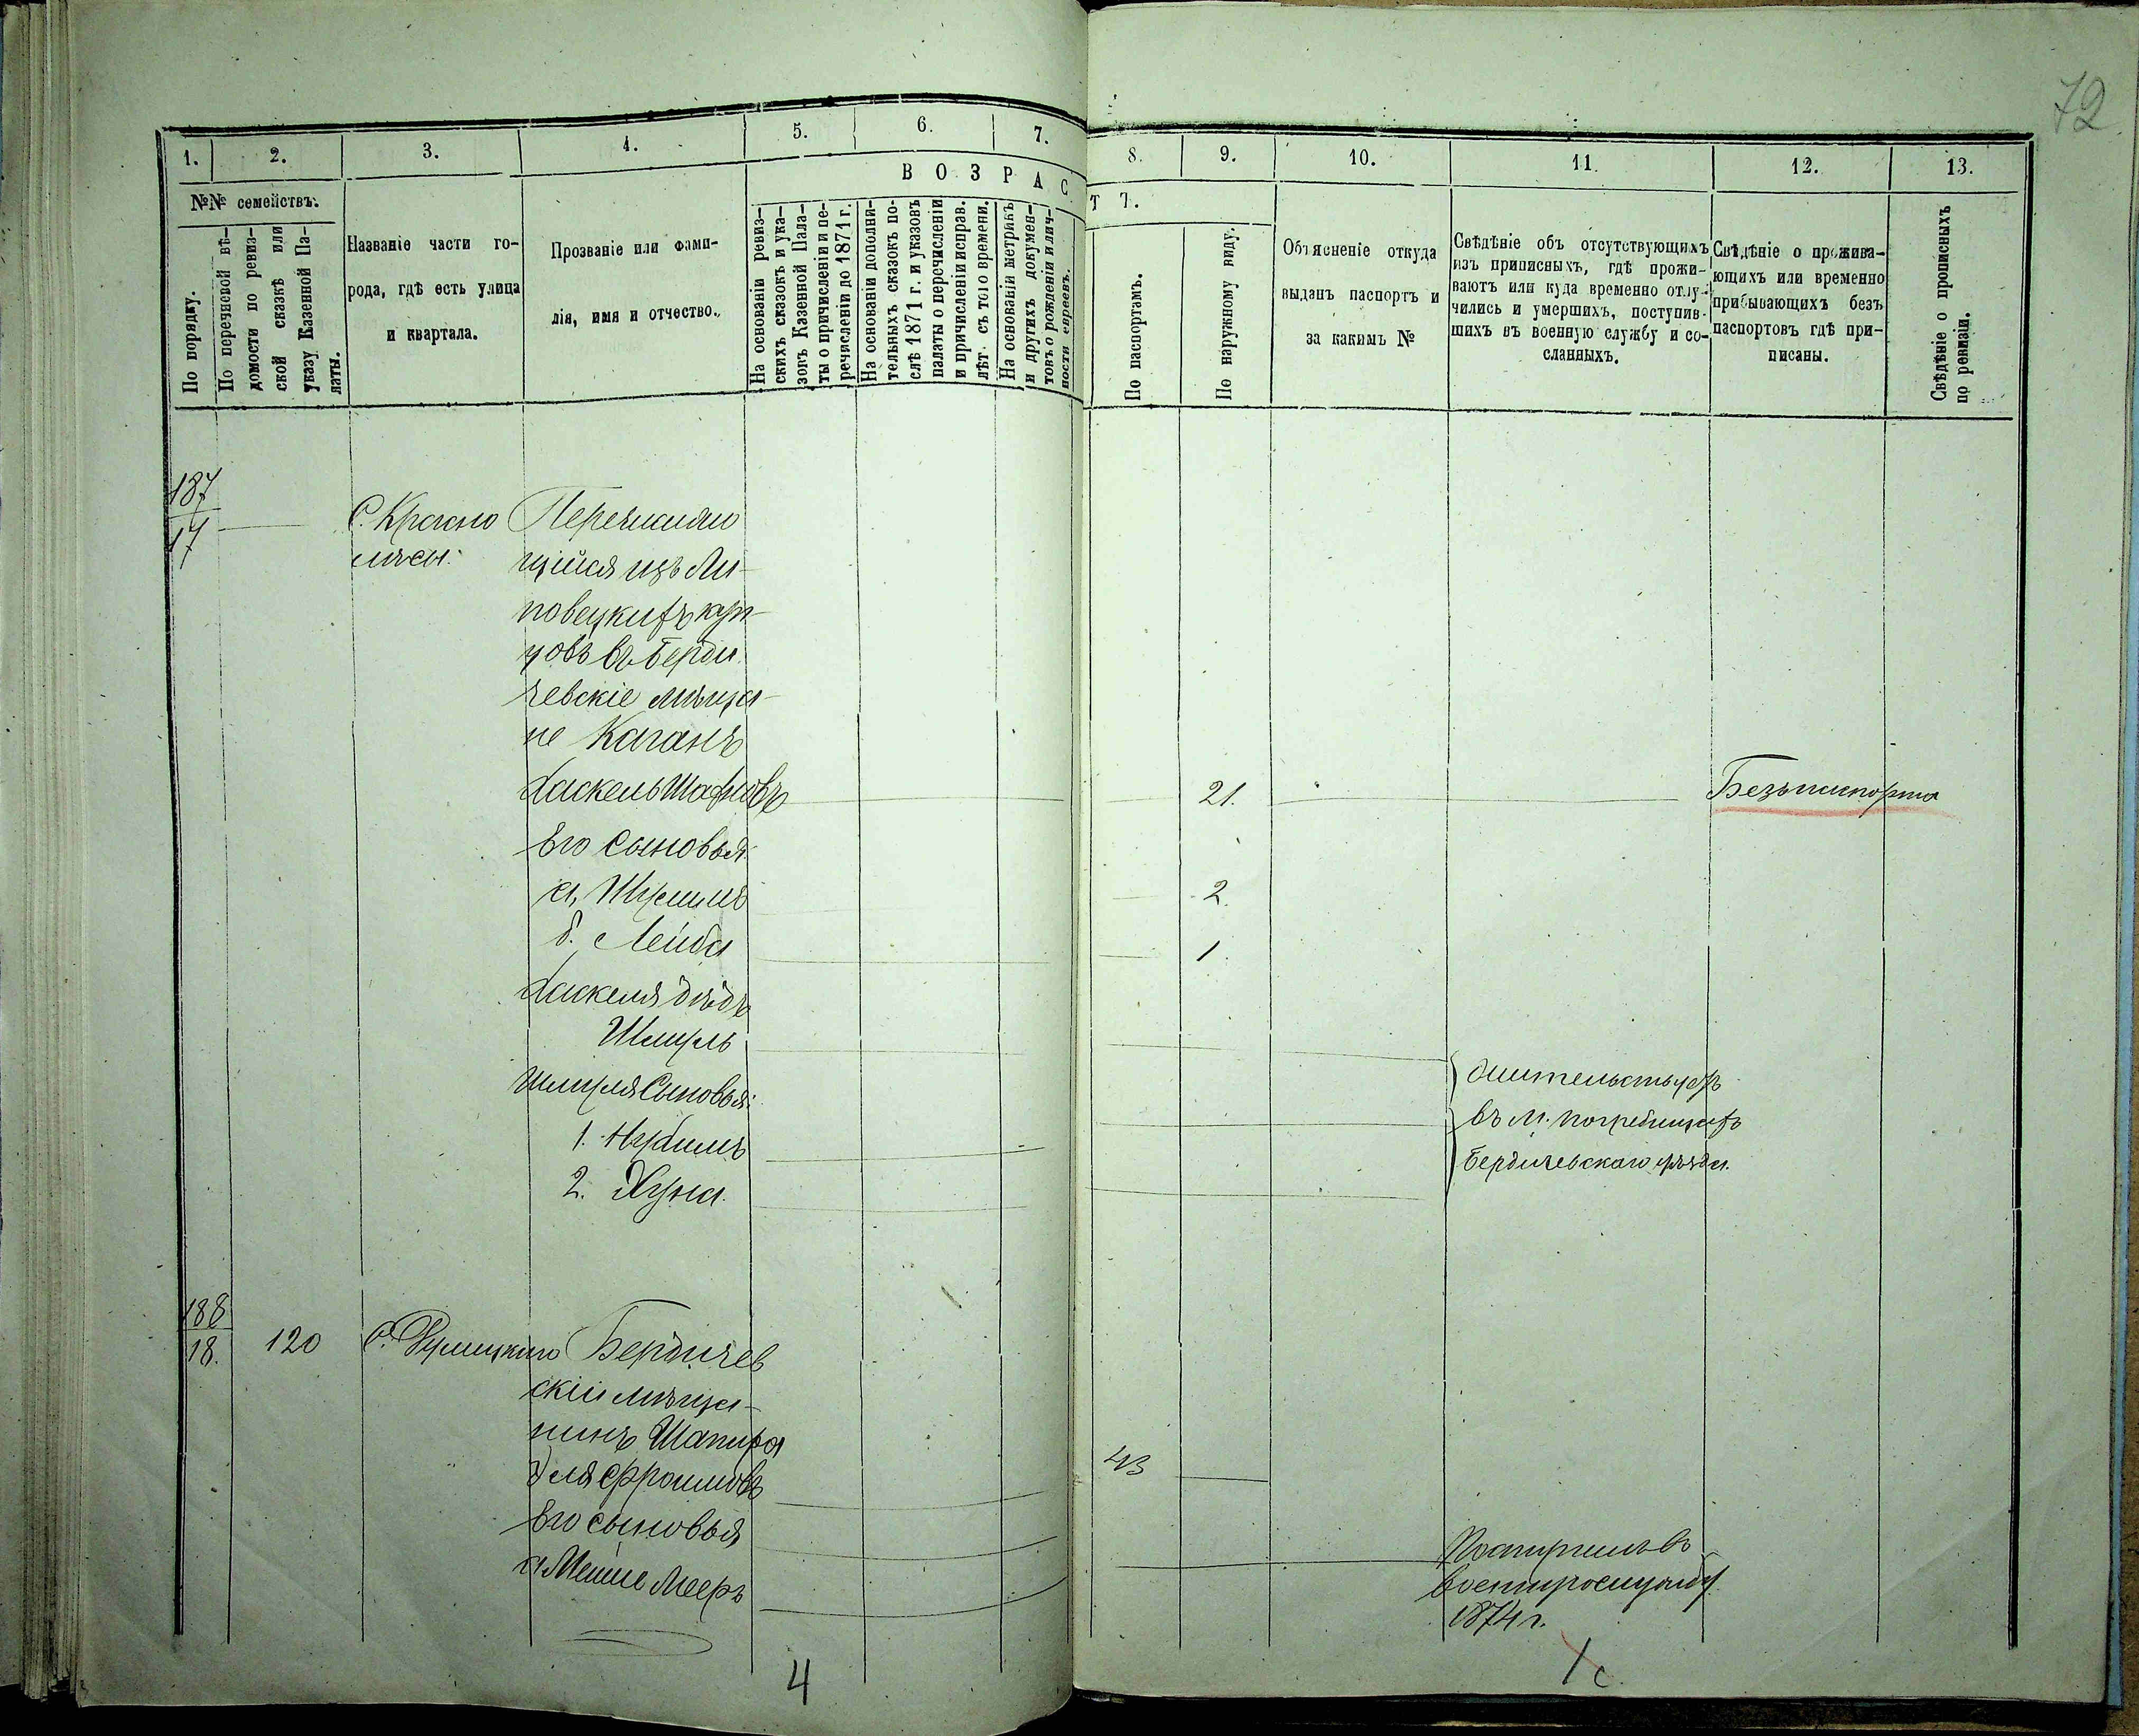 72
1.
2.
3.
4.
5.
6.
7.
8.
9.
10.
11.
12.
13.
ВОЗРАСТЪ.
№№ семействъ.
По порядку.
По перечневой вѣ-
домости по ревиз-
ской сказкѣ или
указу Казенной Па-
латы.
Названіе части го-
рода, гдѣ есть улица
и квартала.
Прозваніе или фами-
лія, имя и отчество.
На основаніи ревиз-
скихъ сказокъ и ука-
зовъ Казенной Пала-
ты о причисленіи и пе-
речисленіи до 1871 г.
На основаніи дополни-
тельныхъ сказокъ по-
слѣ 1871 г. и указовъ
палаты о перечисленіи
и причисленіи исправ.
лѣт. съ того времени.
На основаніи метрикъ
и другихъ докумен-
товъ о рожденіи и лич-
ности евреевъ.
По паспортамъ.
По наружному виду.
Объясненіе откуда
выданъ паспортъ и
за какимъ №
Свѣдѣніе объ отсутствующихъ
изъ приписныхъ, гдѣ прожи-
ваютъ или куда временно отлу-
чились и умершихъ, поступив-
шихъ въ военную службу и со-
сланныхъ.
Свѣдѣніе о прожива-
ющихъ или временно
прибывающихъ безъ
паспортовъ гдѣ при-
писаны.
Свѣдѣніе о прописныхъ
по ревизіи.
187
17
С. Красно
лѣсы.
Перечисляю
щійся изъ Ли-
повецкихъ куп-
цовъ въ Берди
чевскіе мѣща-
не Каганъ
Хаскель
21.
Безъ паспорта
Его сыновья
а,
2
б. Лейба
1
Хаскеля дѣдъ
Шмуль
Шмуля сыновья:
1.
2. Хуна
жительствуетъ
въ м. Погребищахъ
Бердичевскаго уѣзда.
188
18.
120
С.
Бердичев
скій мѣща-
нинъ Шапира
Эля Фроимовъ
43
Его сыновья
а Мошко Мееръ
Поступилъ въ
военную службу
1874 г.
4
1 с